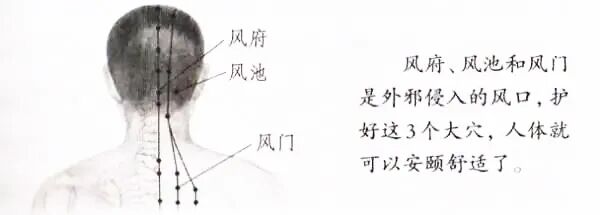 风府
风池
风门
风府、风池和风门
是外邪侵入的风口，护
好这3个大穴，人体就
可以安颐舒适了。